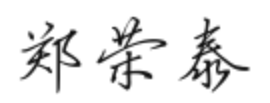 郑荣泰